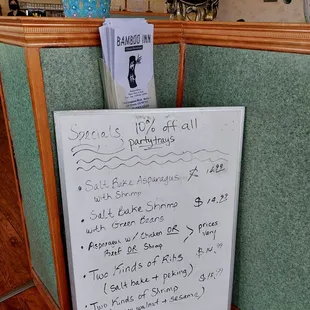 BAMBOO INN
Specials 10% off all
partytrays
• Salt Bake Asparagus
with Shrimp
• Salt Bake Shrimp $14.99
with Green Beans
• Asparagus w/ Chicken OR prices
Beef OR Shrimp vary
• Two Kinds of Ribs
(salt bake + peking)
• Two Kinds of Shrimp
walnut + sesame)